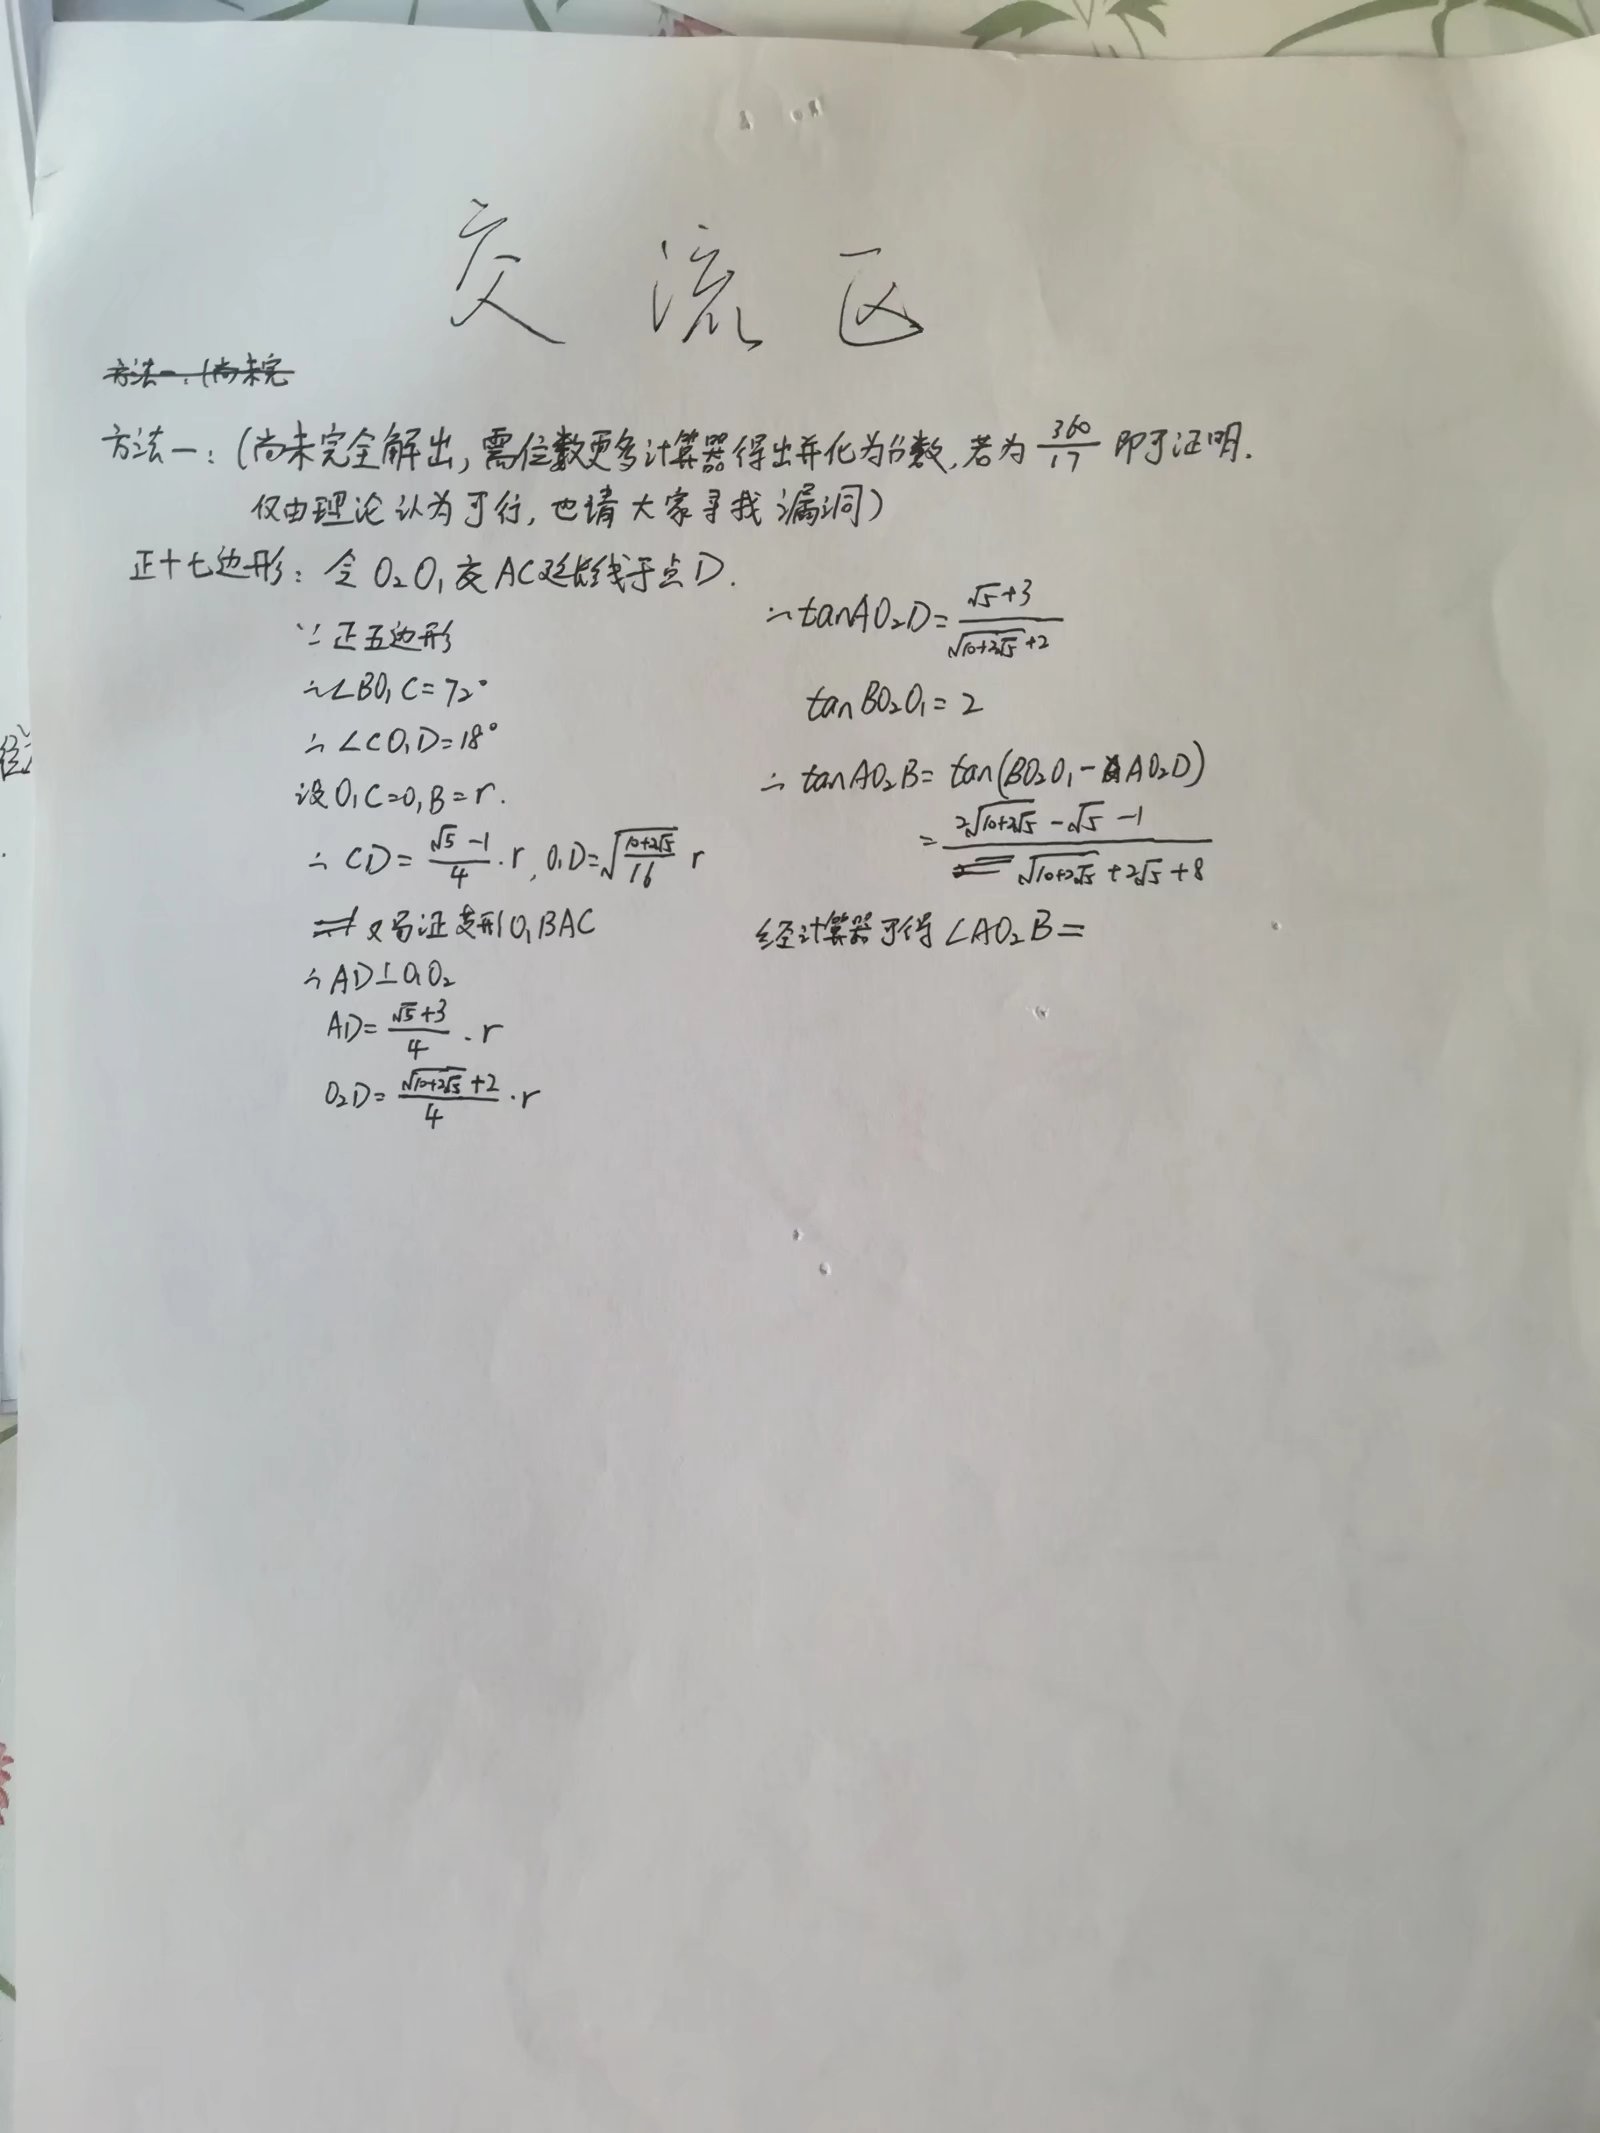 交流区
方法一:(尚未完
方法一:(尚未完全解出,需位数更多计算器得出并化为分数,若为 360/17 即可证明.
仅由理论认为可行,也请大家寻找漏洞)
正十七边形:令O₂O₁交AC延长线于点D.
∵正五边形
∴∠BO₁C=72°
∴∠CO₁D=18°
设O₁C=O₁B=r.
∴CD=(√5-1)/4·r, O₁D=√((10+2√5)/16) r
又易证菱形O₁BAC
∴AD⊥O₁O₂
AD=(√5+3)/4·r
O₂D=(√(10+2√5)+2)/4·r
∴tanAO₂D=(√5+3)/(√(10+2√5)+2)
tanBO₂O₁=2
∴tanAO₂B=tan(BO₂O₁-AO₂D)
=(2√(10+2√5)-√5-1)/(√(10+2√5)+2√5+8)
经计算器可得∠AO₂B=